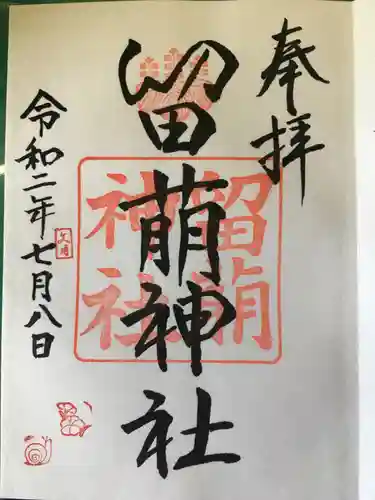 奉拝
留萌神社
留萌
神社
令和二年七月八日